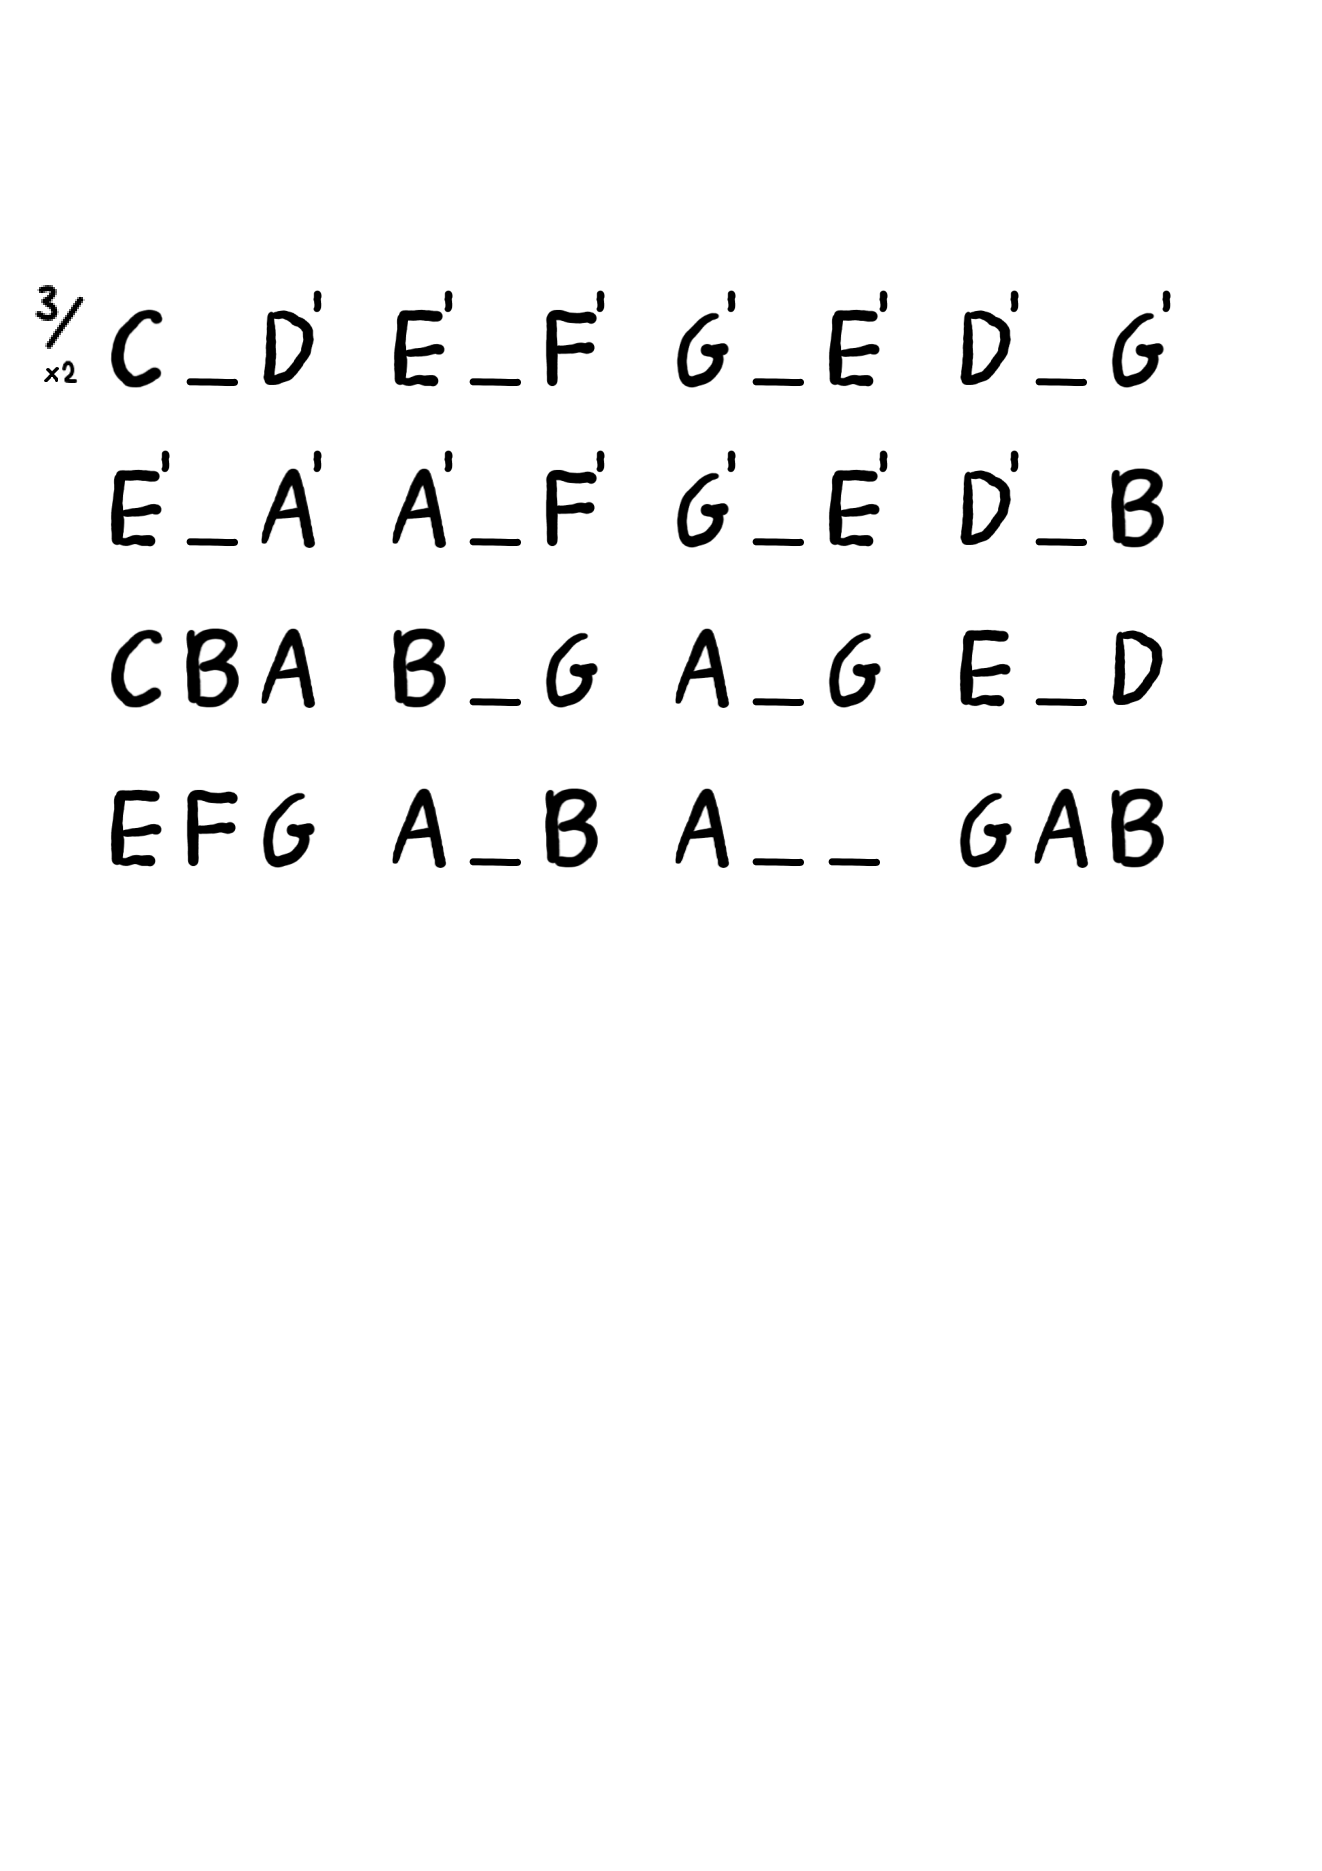 3/ x2 C _ D' E' _ F' G' _ E' D' _ G'
E' _ A' A' _ F' G' _ E' D' _ B
C B A B _ G A _ G E _ D
E F G A _ B A _ _ G A B